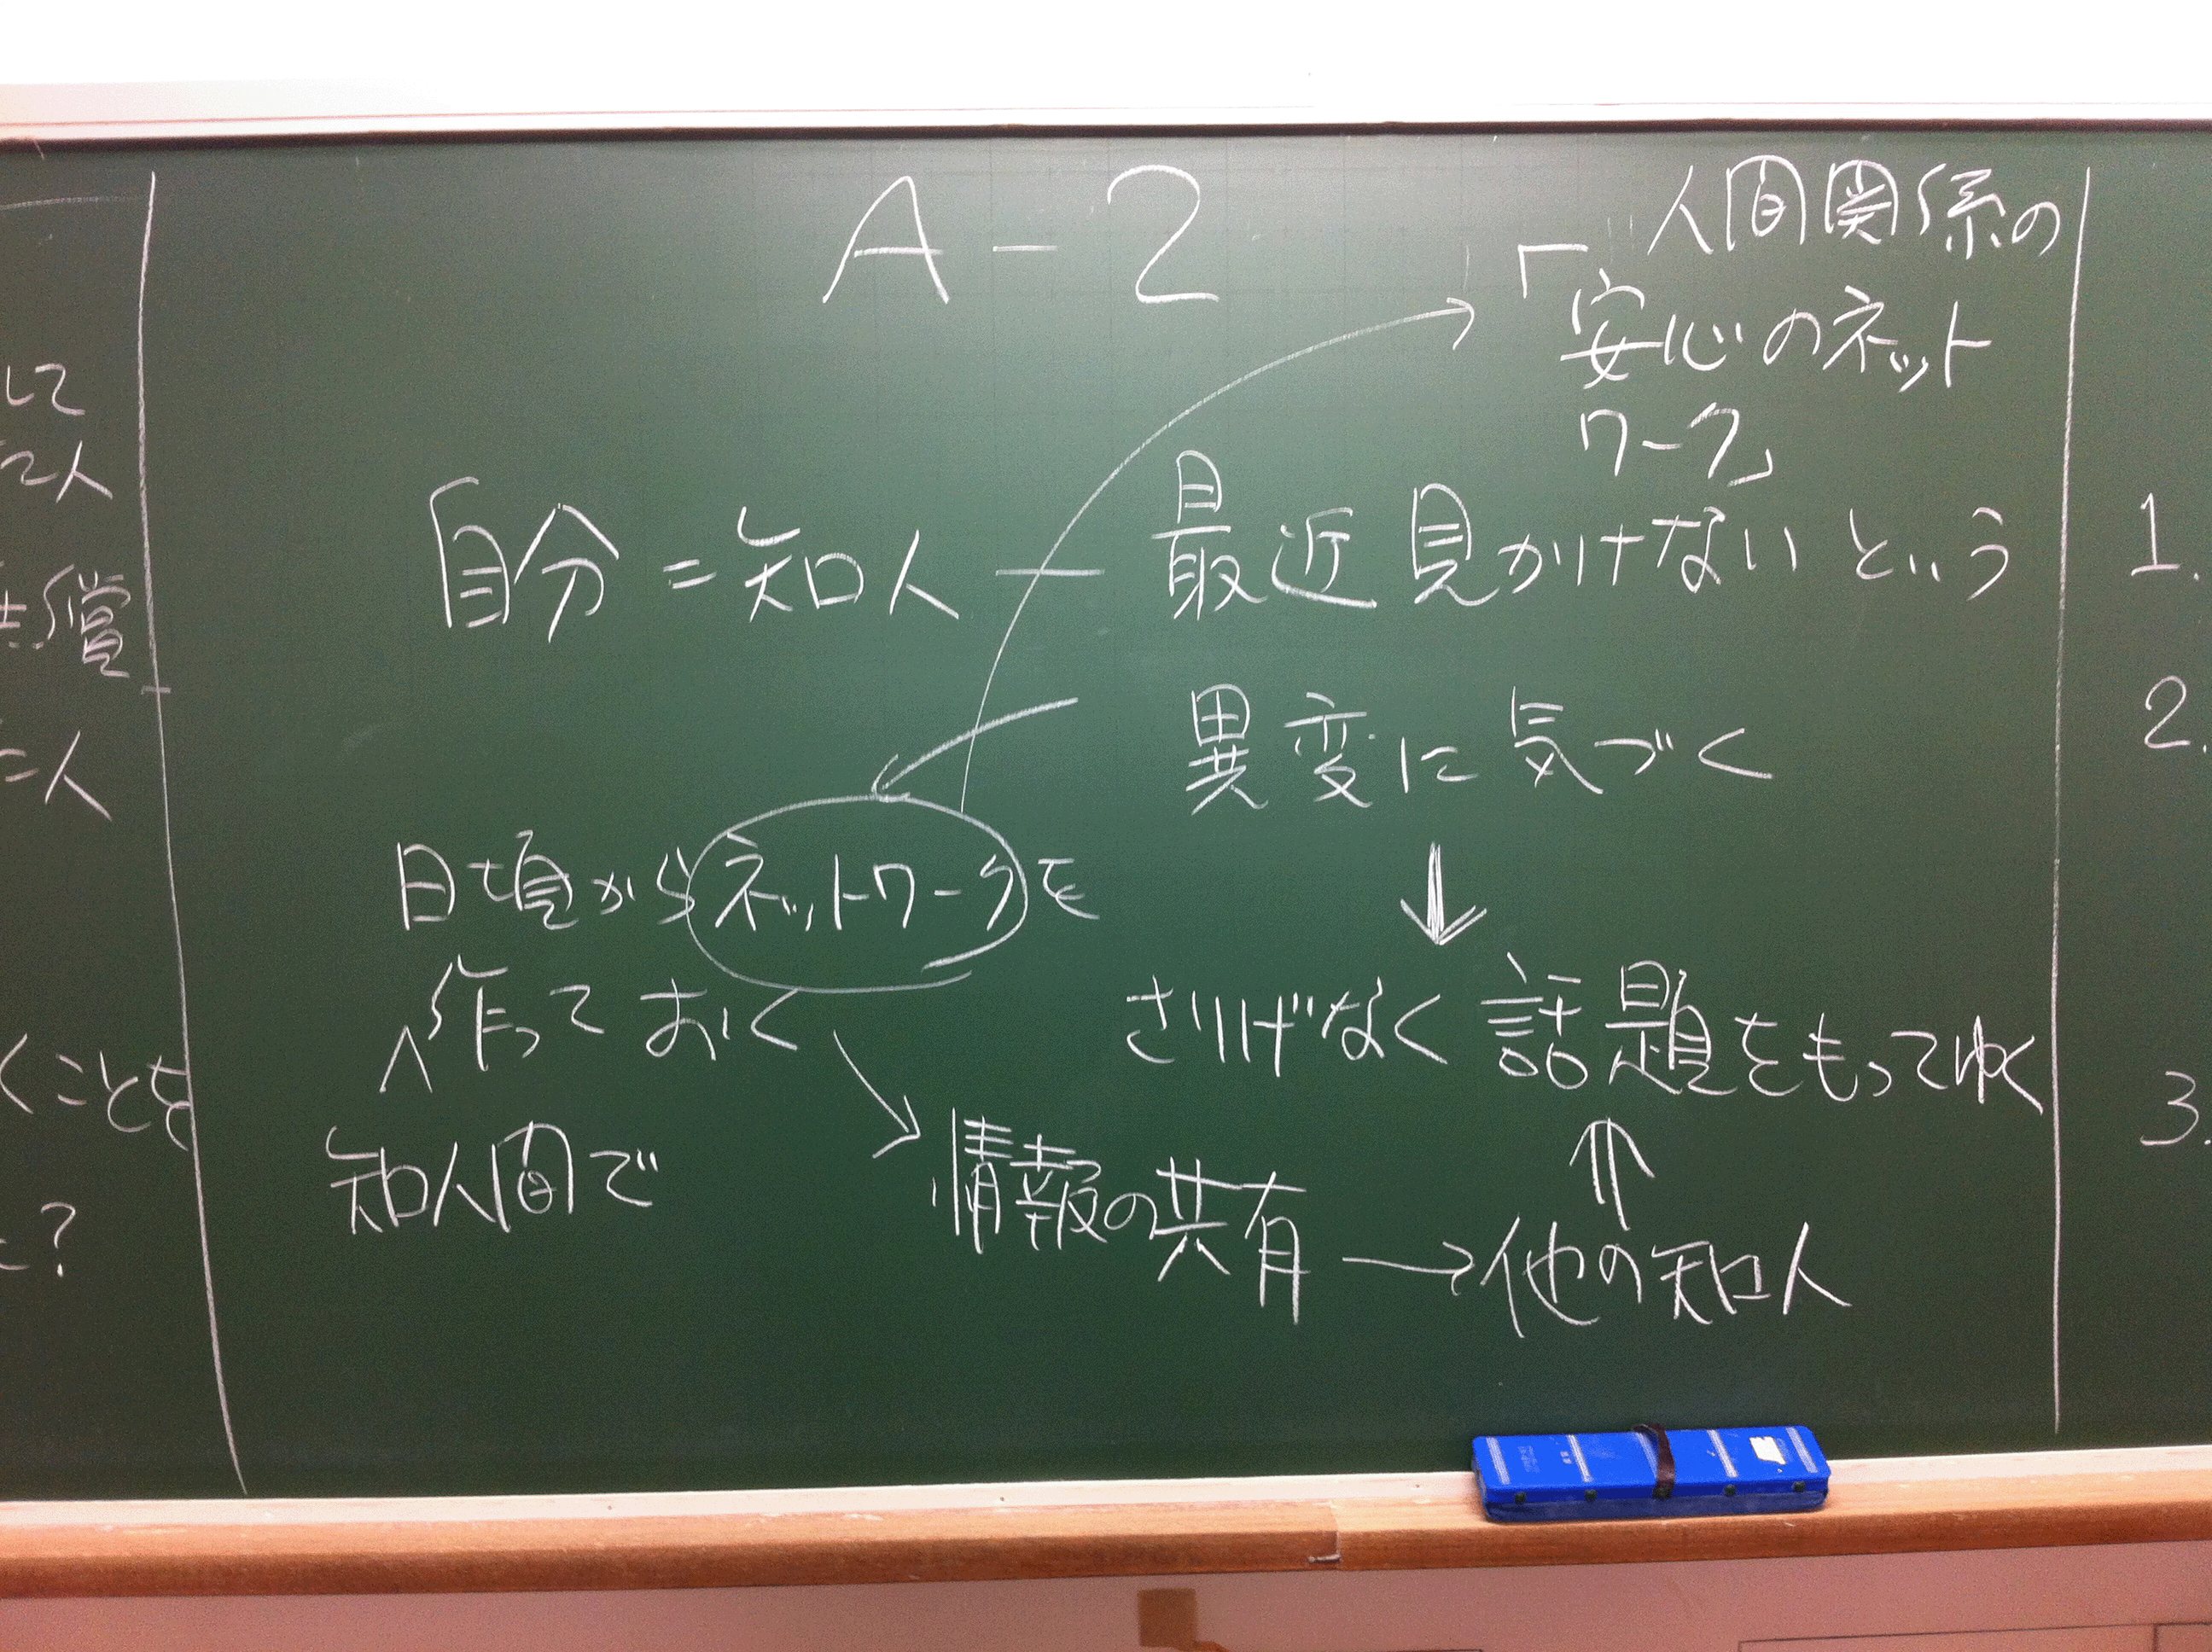 A-2
人間関係の
「安心のネット
ワーク」
自分=知人ー最近見かけないという
異変に気づく
日頃からネットワークを
作っておく
知人間で
さりげなく話題をもってゆく
情報の共有→他の知人
して
人
償
人
くことを
?
1.
2.
3.